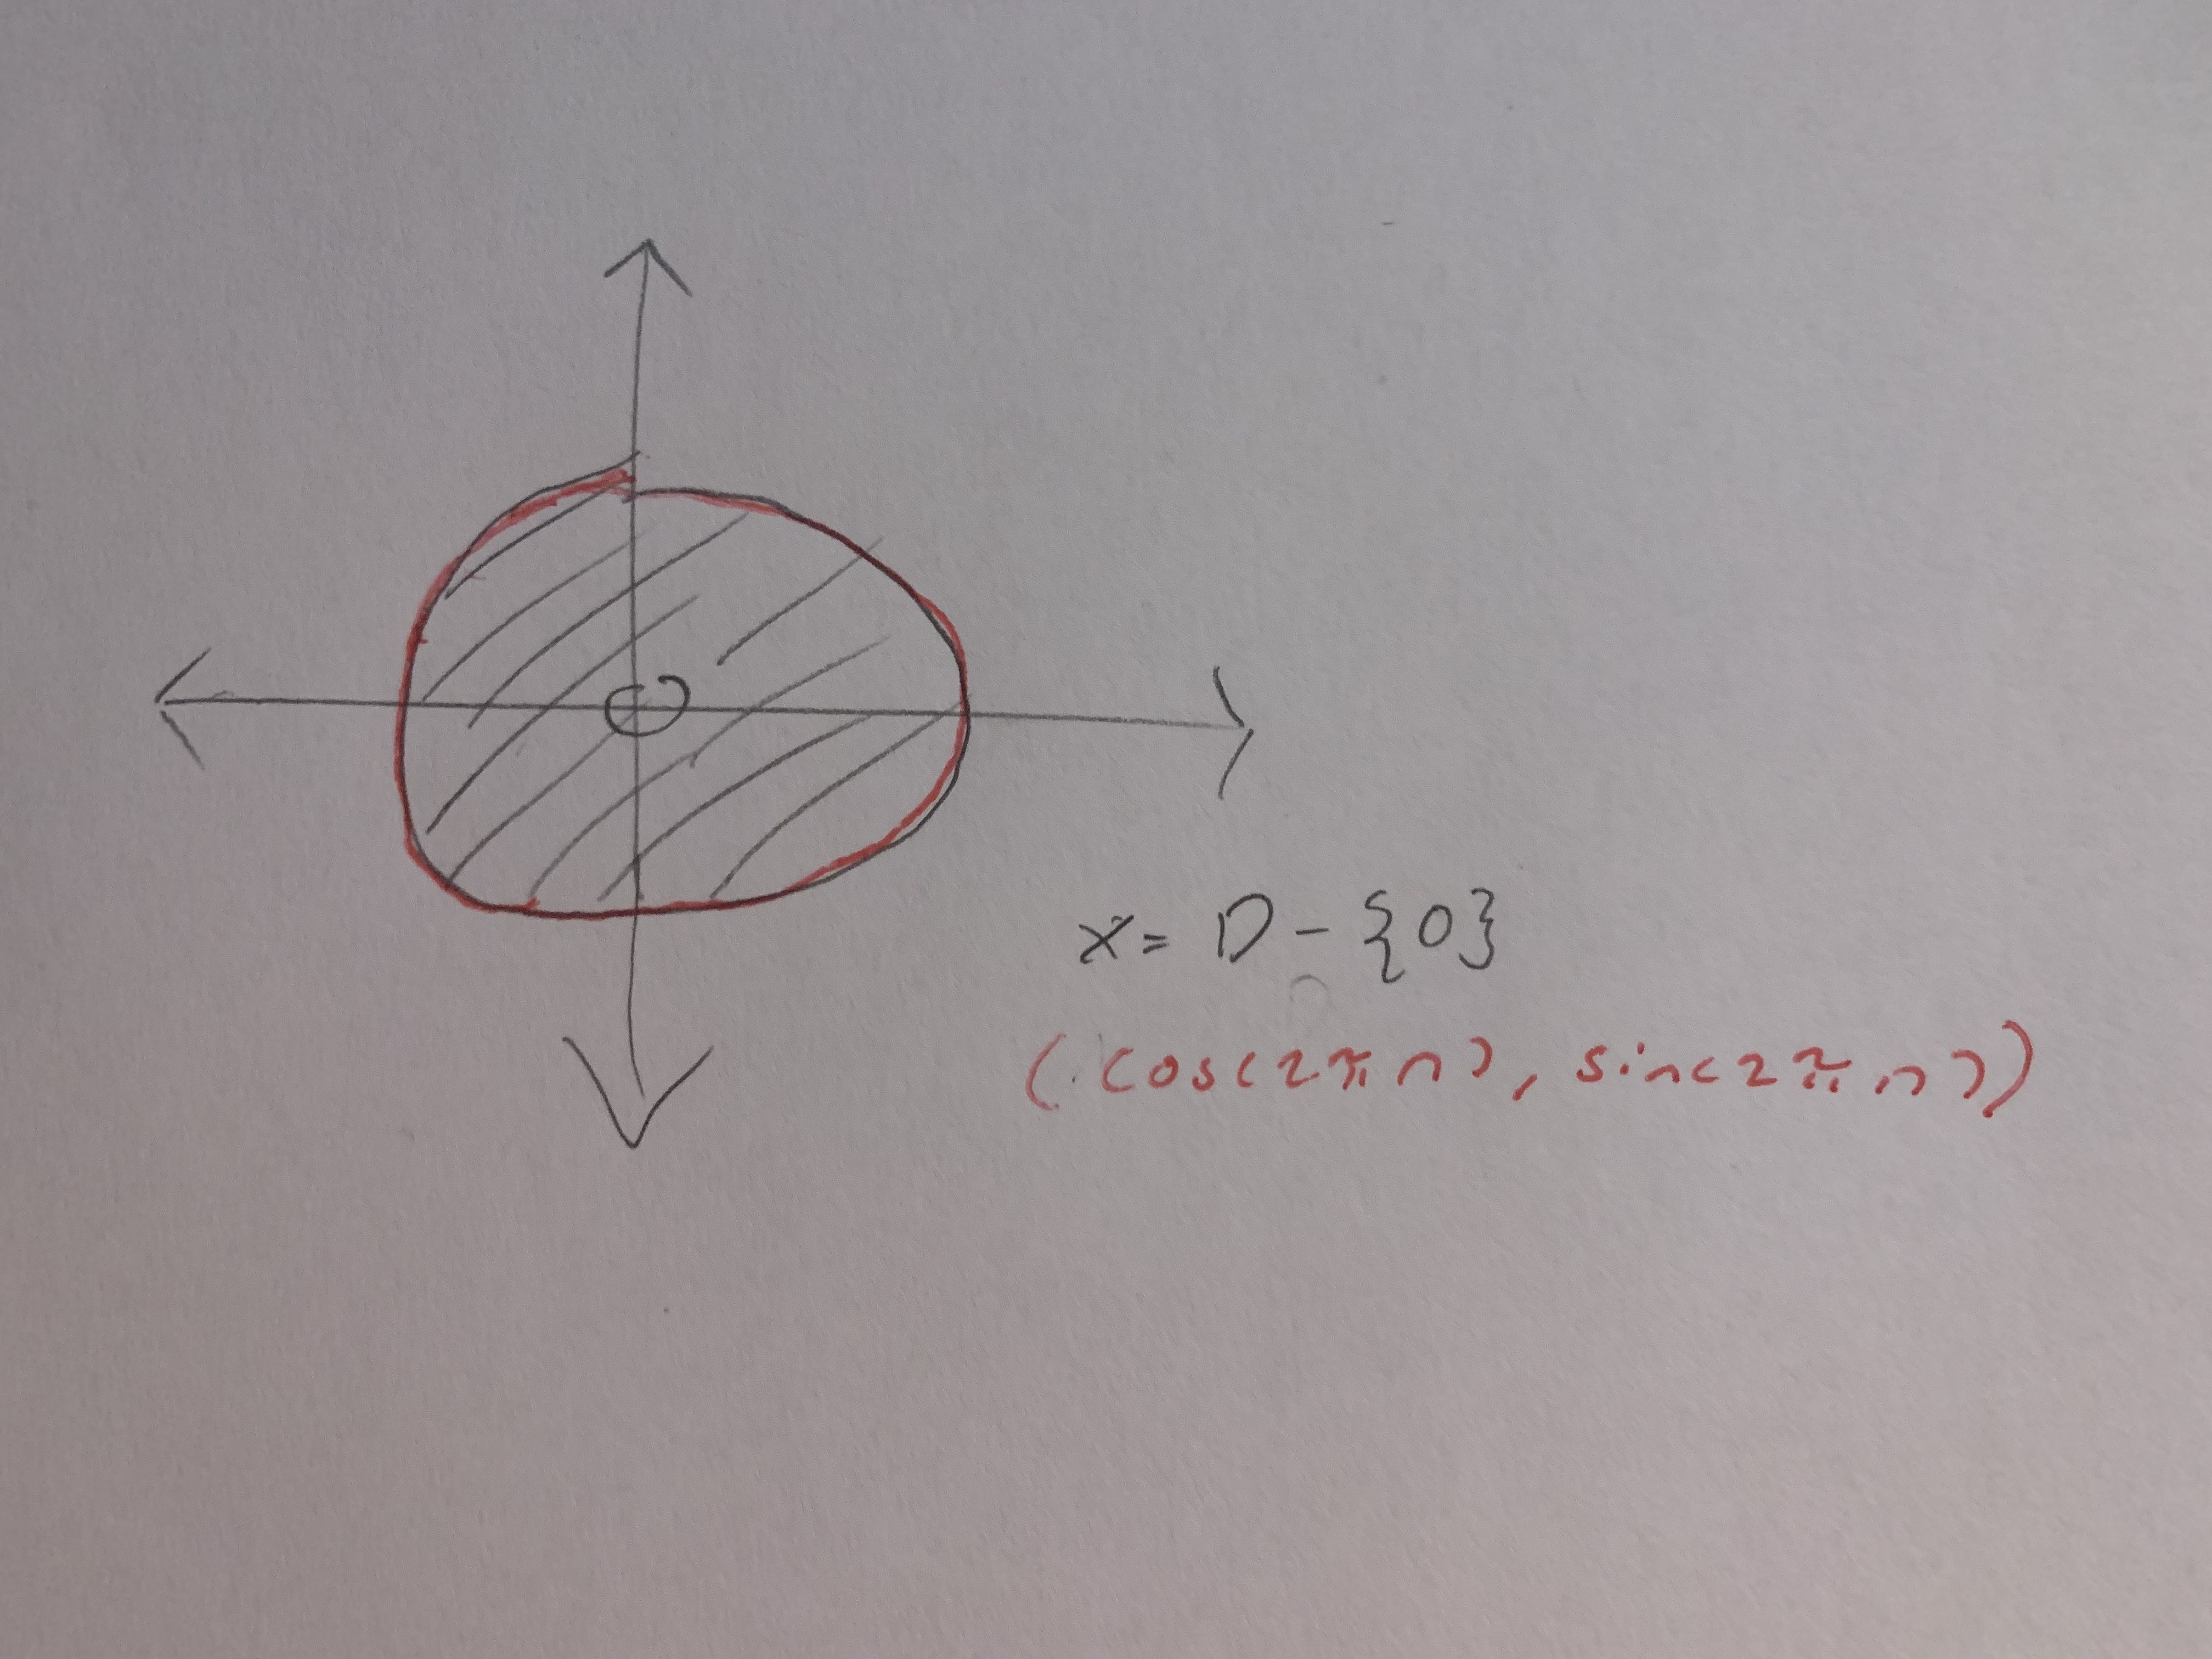 X = D - {0}
(cos(2πn), sin(2πn))